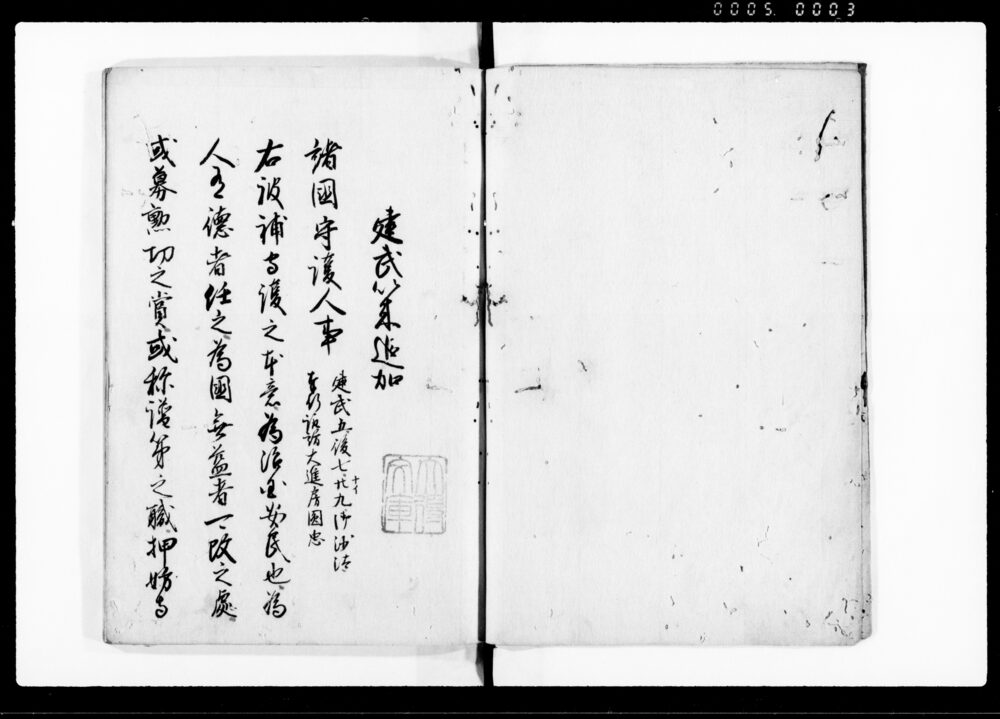 0005. 0003
建武以来追加
諸國守護人事
建武五後七廿九御沙汰
奉行諏訪大進房圓忠
右被補守護之本意為治国安民也為
人有德者任之為國無益者可改之處
或募勲功之賞或称譜第之職押妨寺